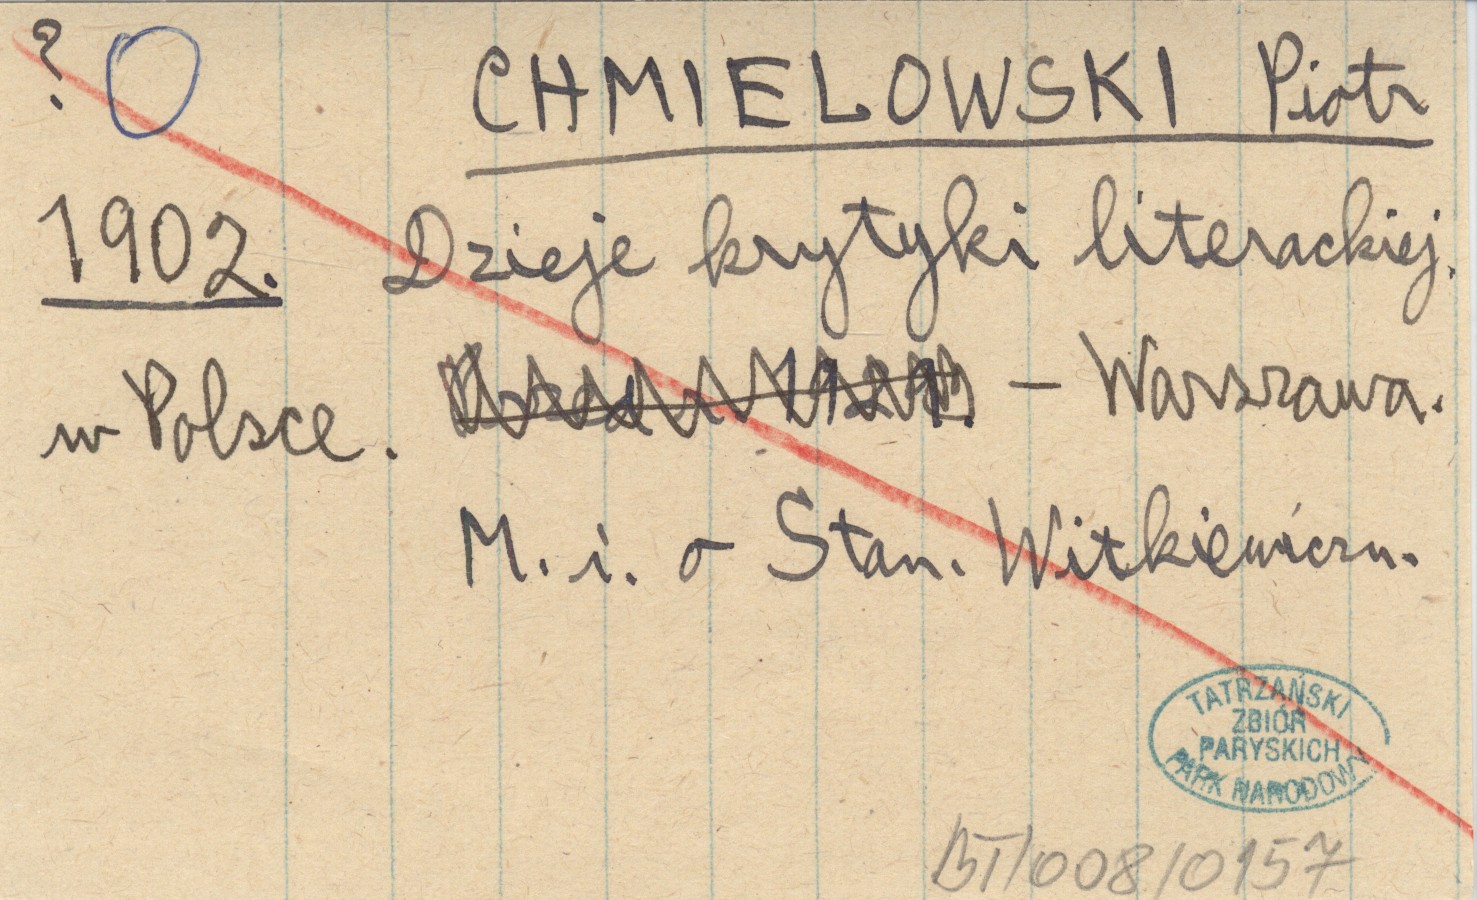 ? CHMIELOWSKI Piotr
1902. Dzieje krytyki literackiej.
w Polsce. — Warszawa.
M. i. o Stan. Witkiewiczu.
TATRZAŃSKI
ZBIÓR
PARYSKICH
PARK NARODOWY
BT/008/0157